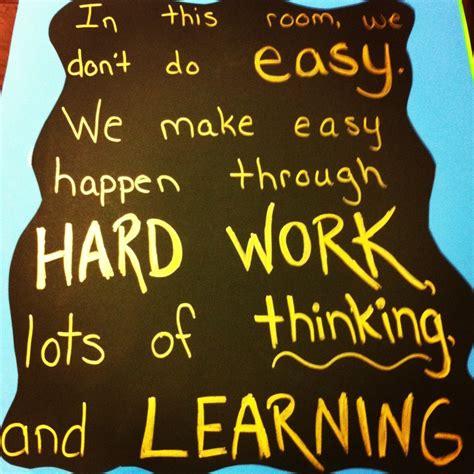 In this room, we
don't do easy.
We make easy
happen through
HARD WORK,
lots of thinking,
and LEARNING